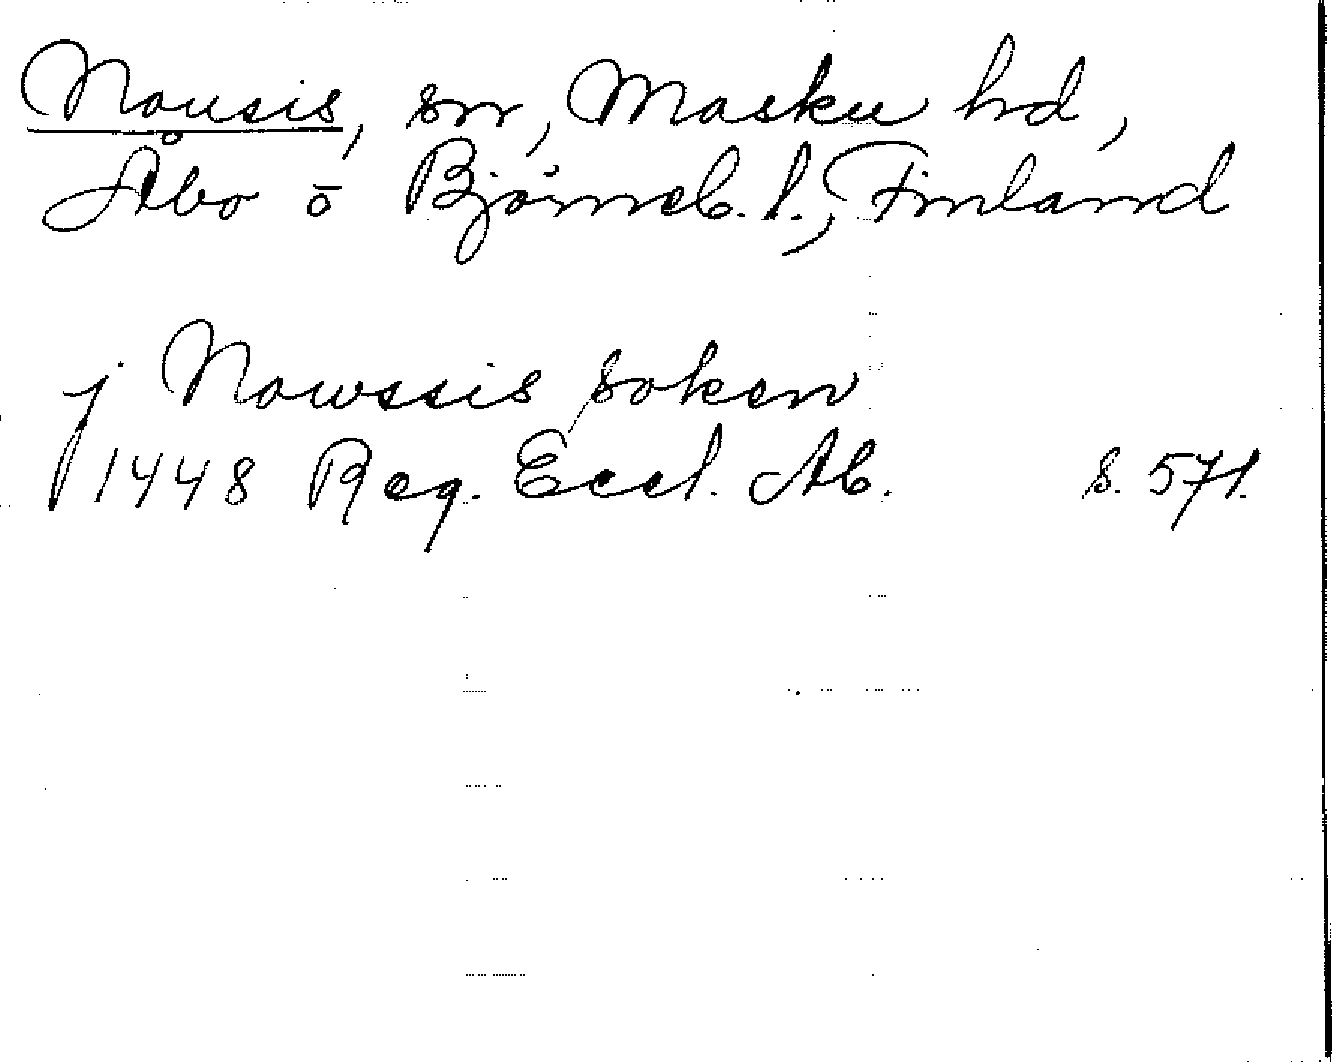 Nousis, sn, Masku hd,
Åbo o Björneb. l., Finland
j Nowssis soken
1448 Reg. Eccl. Ab. s. 571.